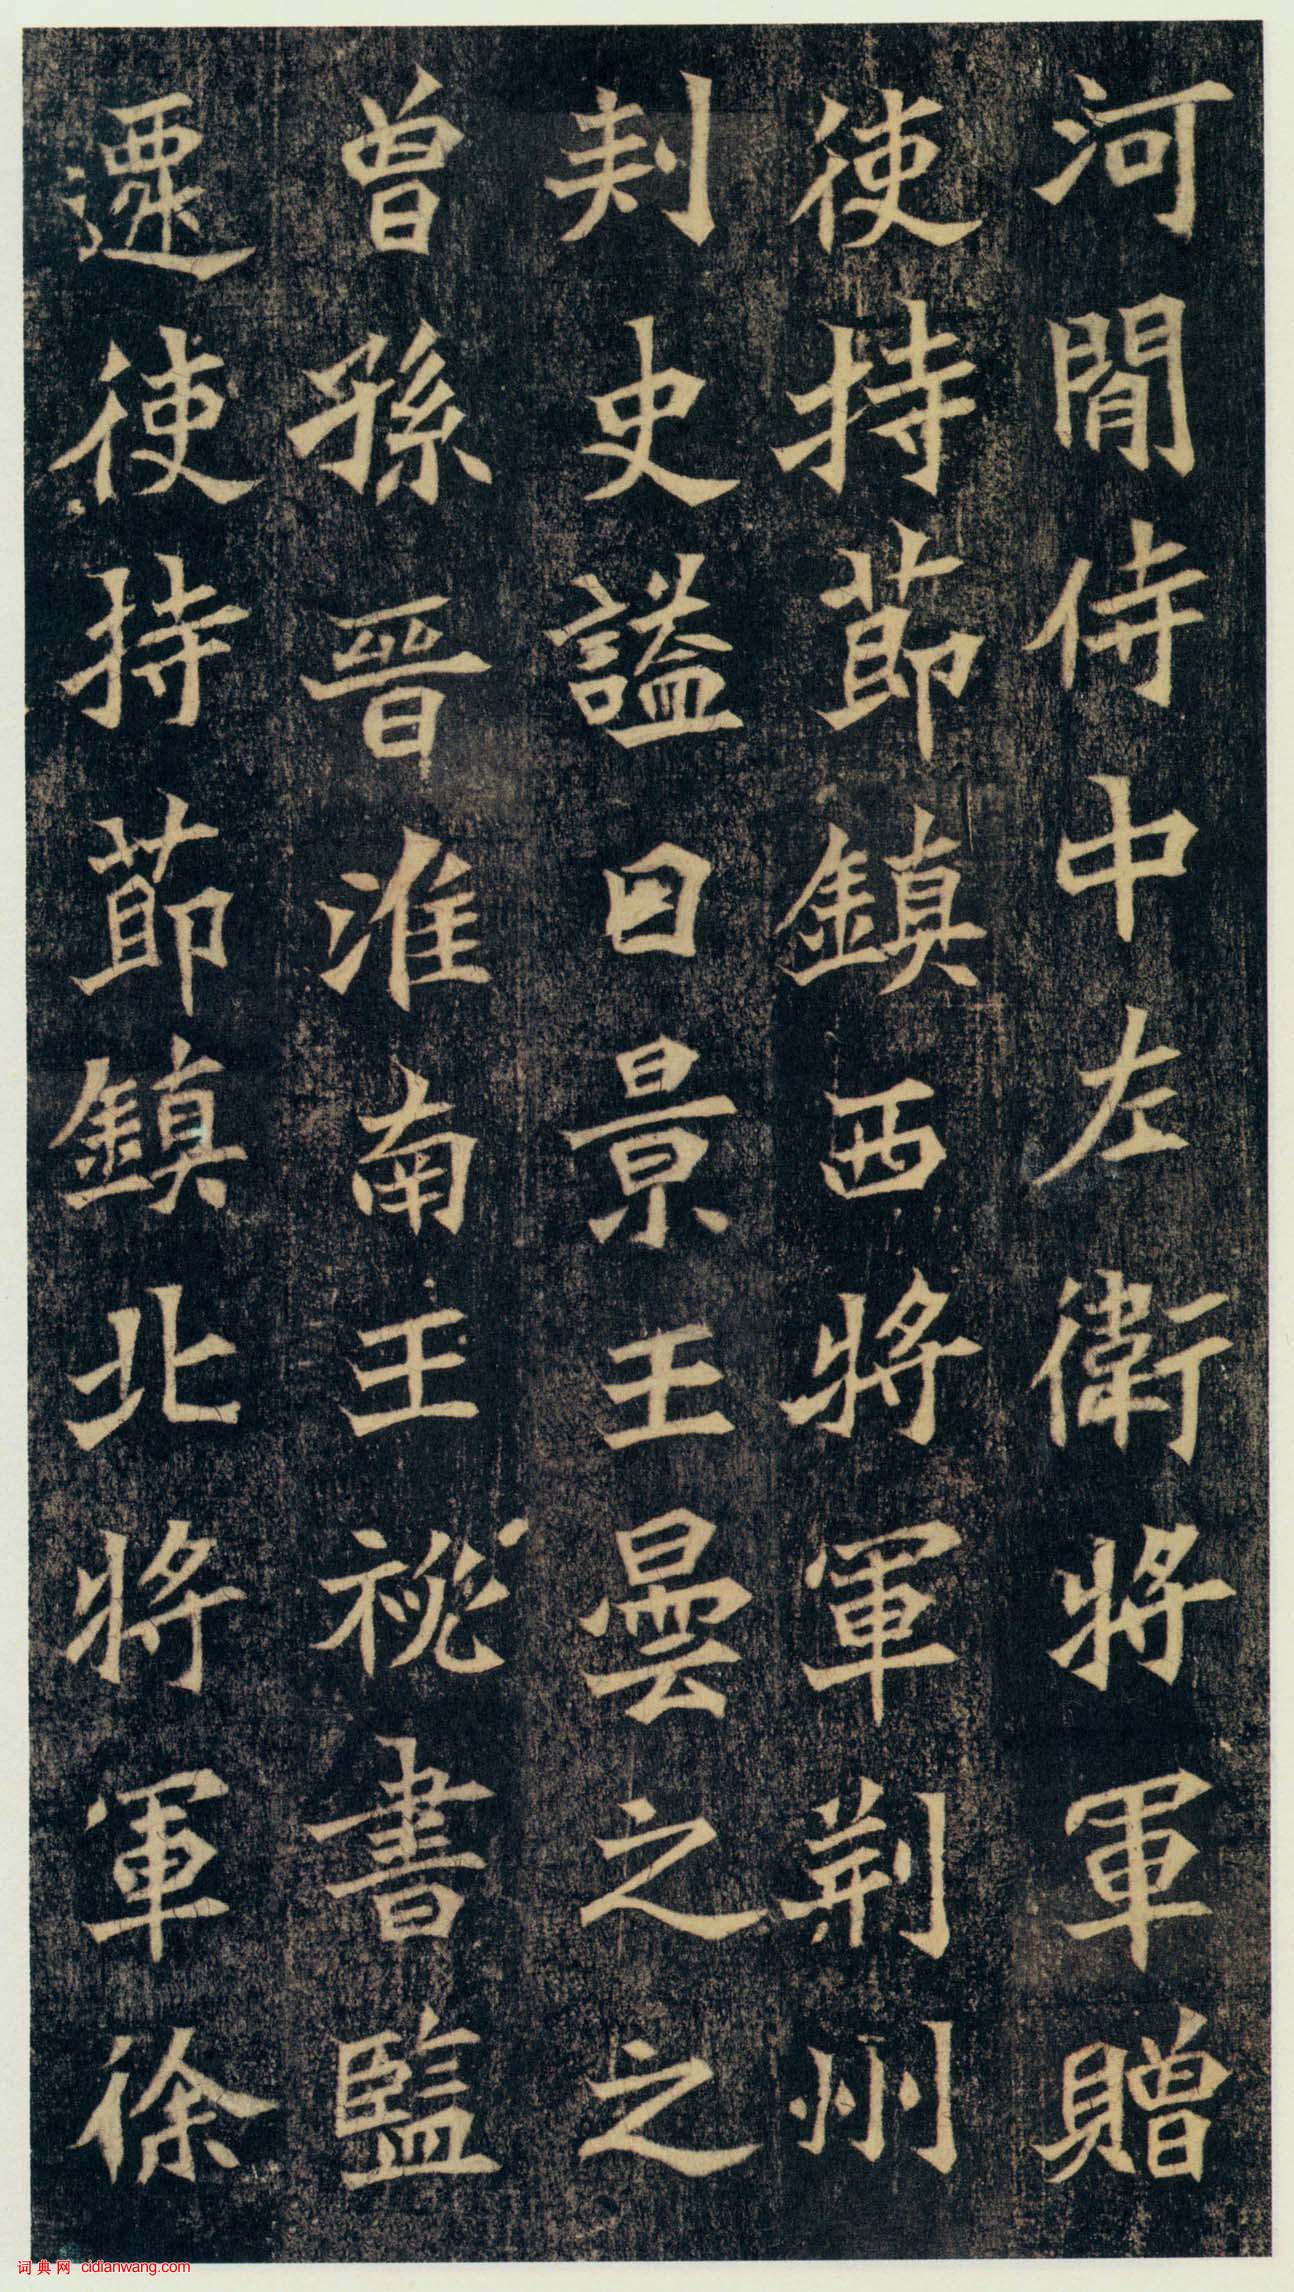 河閒侍中左衛將軍贈
使持節鎮西將軍荊州
刺史謚曰景王曇之之
曾孫晉淮南王祕書監
遷使持節鎮北將軍徐
词典网 cidianwang.com